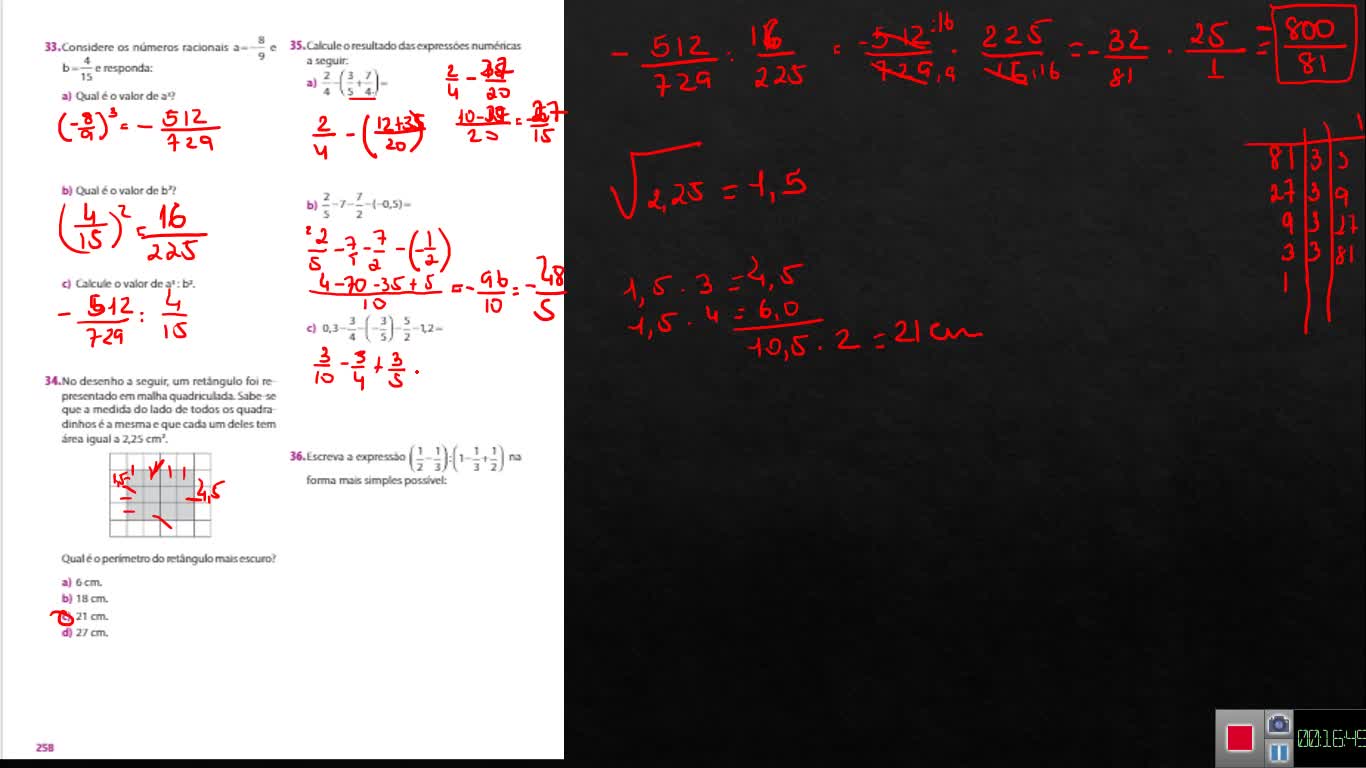 33. Considere os números racionais a=-8/9 e
b=4/15 e responda:
a) Qual é o valor de a³?
(-8/9)³ = -512/729
b) Qual é o valor de b²?
(4/15)² = 16/225
c) Calcule o valor de a³ : b².
-512/729 : 4/15
34. No desenho a seguir, um retângulo foi re-
presentado em malha quadriculada. Sabe-se
que a medida do lado de todos os quadra-
dinhos é a mesma e que cada um deles tem
área igual a 2,25 cm².
1,5
4,5
Qual é o perímetro do retângulo mais escuro?
a) 6 cm.
b) 18 cm.
c) 21 cm.
d) 27 cm.
258
35. Calcule o resultado das expressões numéricas
a seguir:
a) 2/4-(3/5+7/4)=
2/4 - (12+35/20)
b) 2/5-7-7/2-(-0,5)=
2/5 - 7/1 - 7/2 - (-1/2)
4-70-35+5/10 = -96/10 = -48/5
c) 0,3-3/4-(-3/5)-5/2-1,2=
3/10 - 3/4 + 3/5
36. Escreva a expressão (1/2-1/3):(1-1/3+1/2) na
forma mais simples possível:
-512/729 : 16/225 = -512:16/729:9 225/16:16 = -32/81 . 25/1 = -800/81
√2,25 = 1,5
1,5 . 3 = 4,5
1,5 . 4 = 6,0
10,5 . 2 = 21 cm
1
81 3 3
27 3 9
9 3 27
3 3 81
1
00:16:45